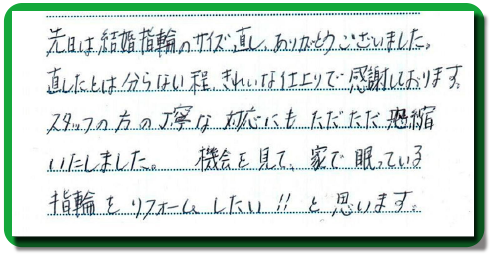 先日は結婚指輪のサイズ直し、ありがとうございました。
直したとは分らない程、きれいな仕上りで感謝しております。
スタッフの方の丁寧な対応にもただただ恐縮
いたしました。 機会を見て、家で眠っている
指輪をリフォームしたい!! と思います。